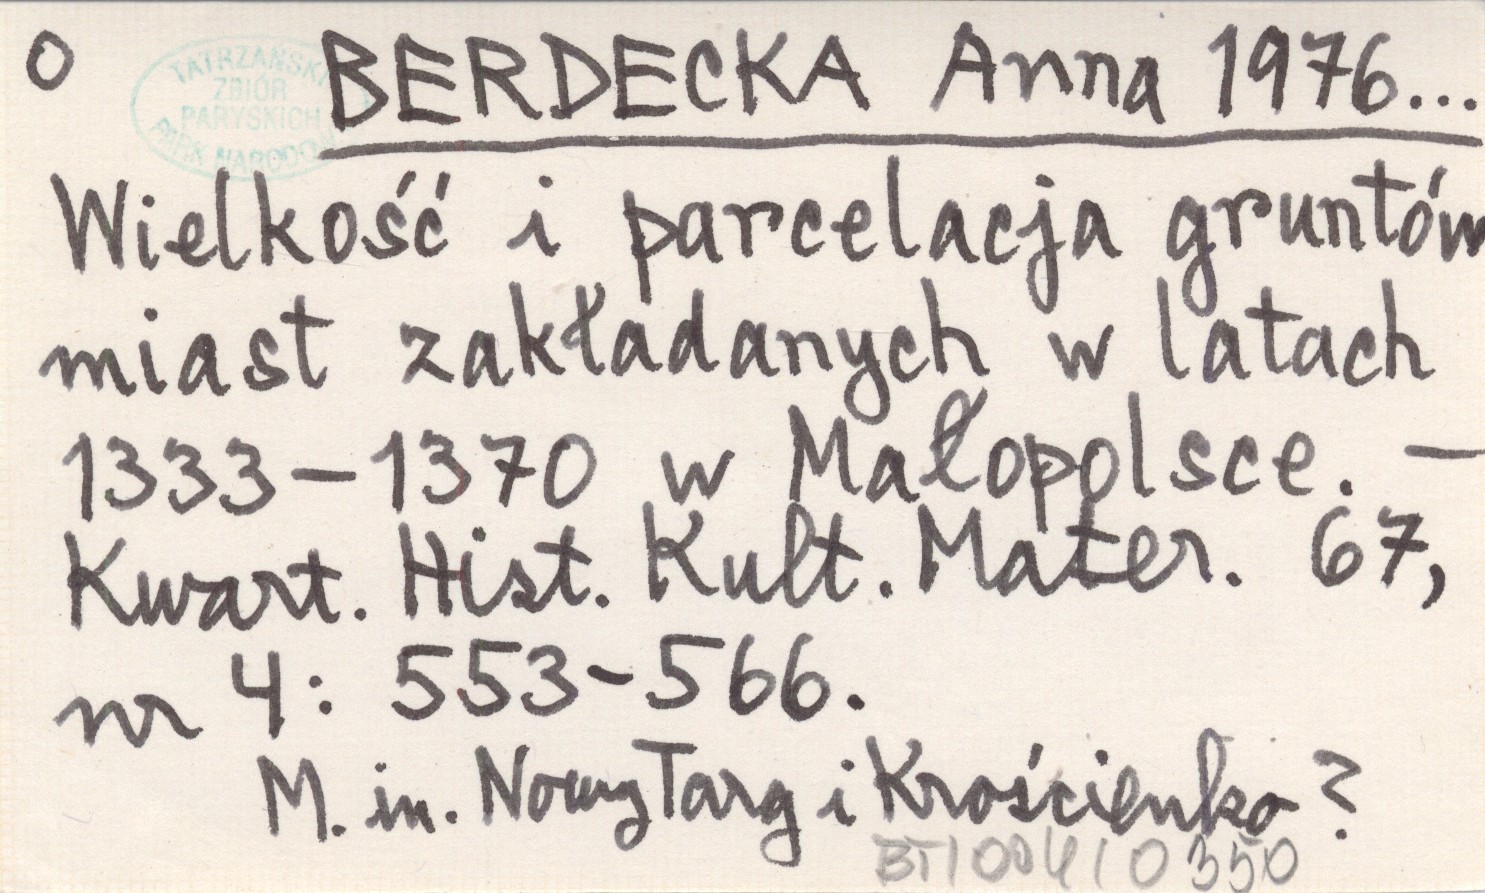 O BERDECKA Anna 1976...
TATRZAŃSKI
ZBIÓR
PARYSKICH
PARK NARODOWY
Wielkość i parcelacja gruntów
miast zakładanych w latach
1333-1370 w Małopolsce. –
Kwart. Hist. Kult. Mater. 67,
nr 4: 553-566.
M. in. Nowy Targ i Krościenko?
BT1004/0350